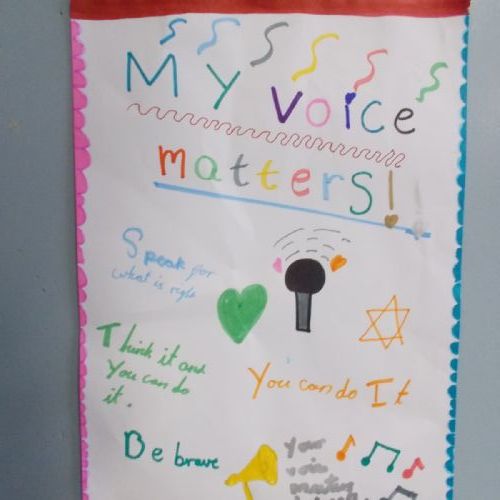 My voice
matters!
Speak for
what is right
Think it and
You can do
it.
You can do It
Be brave
Your
voice